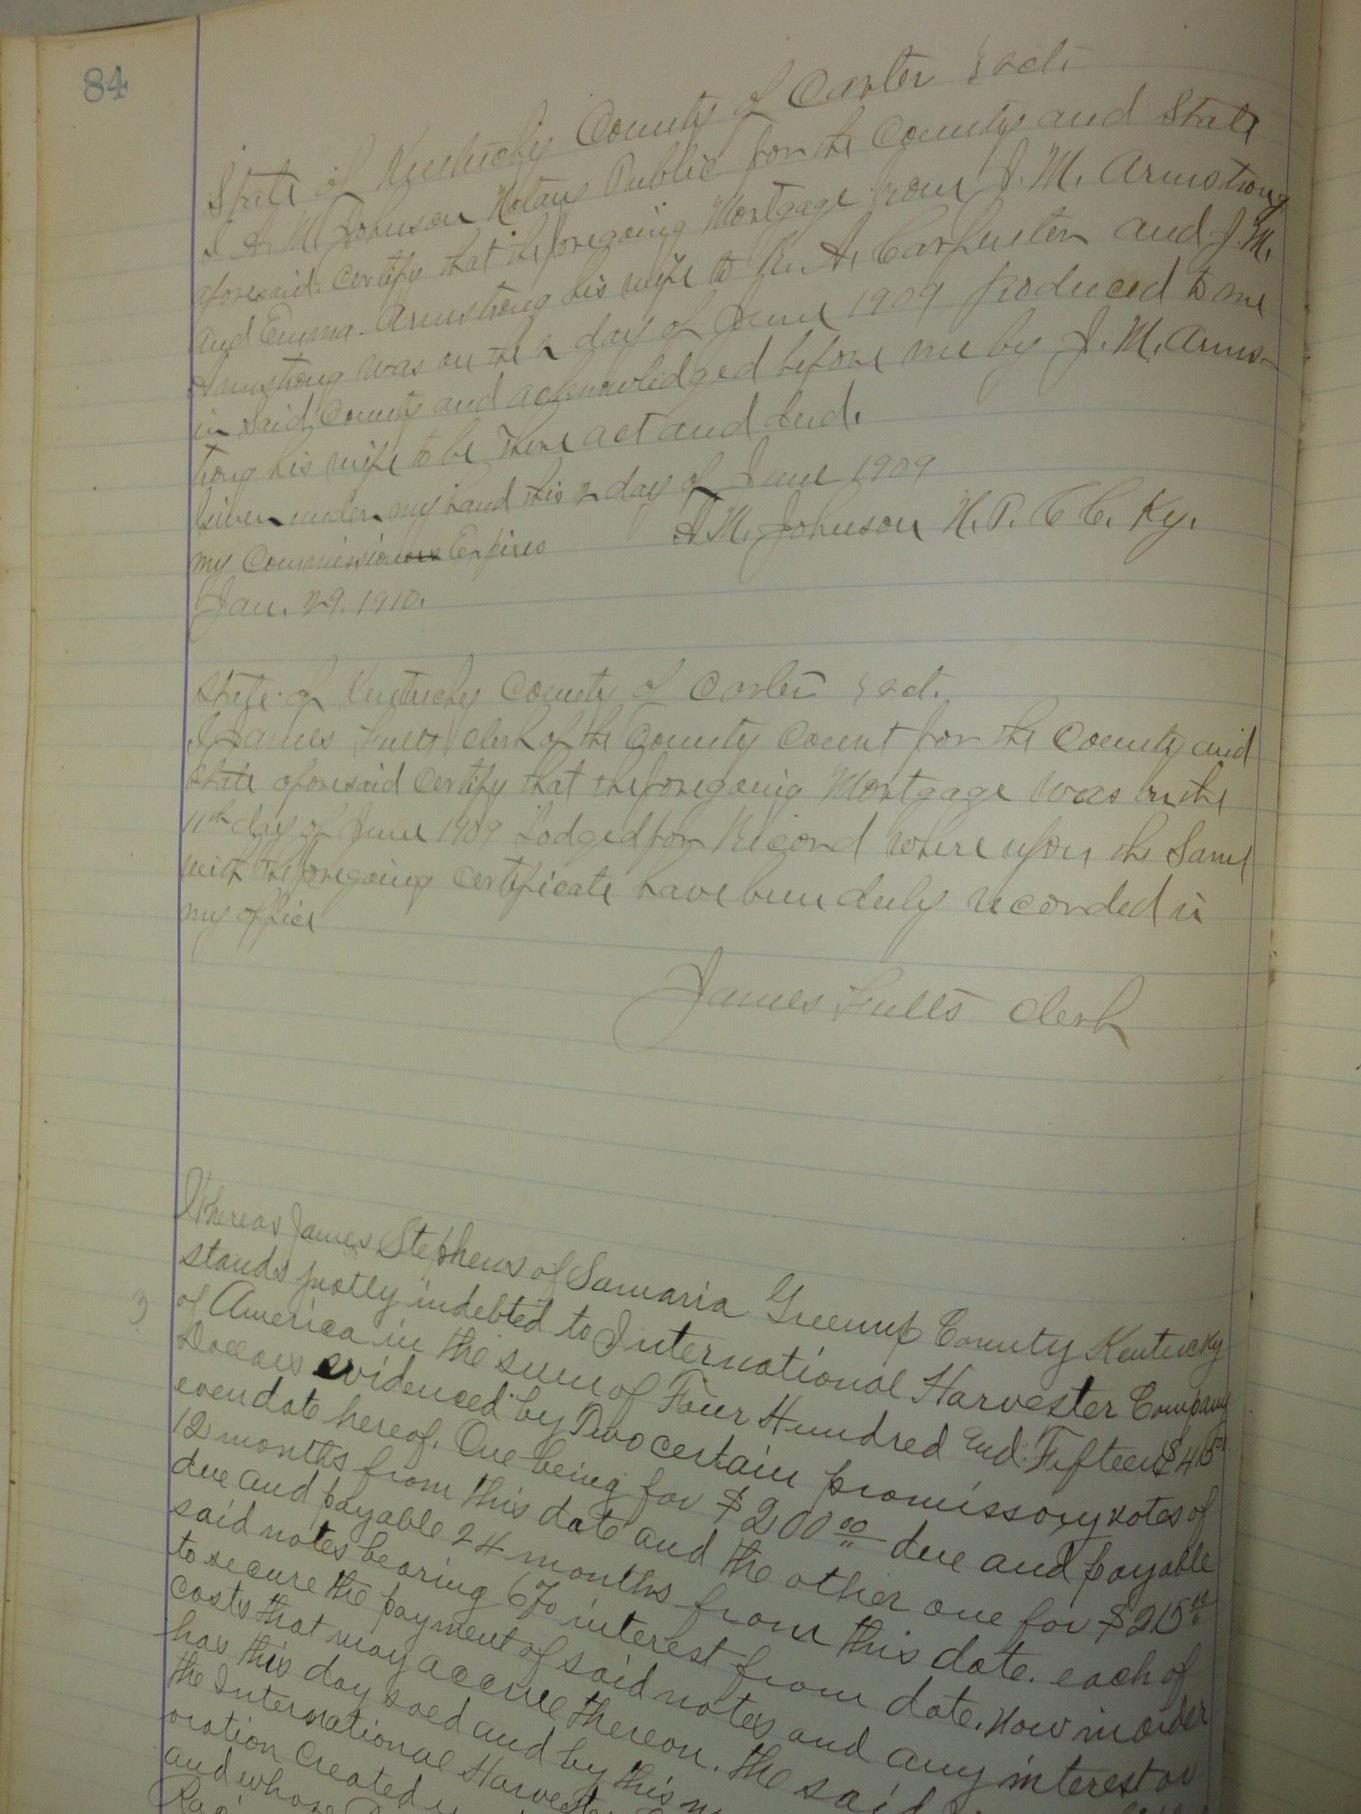 84
State of Kentucky County of Carter } Sct.
I A. M. Johnson Notary Public for the County and State
aforesaid. Certify that the foregoing Mortgage from J. M. Armstrong
and Emma. Armstrong his wife to R. A. Carpenter and J. M.
Armstrong was on the 2 day of June 1909 produced to me
in Said County and acknowledged before me by J. M. Arms-
trong his wife to be There act and deed.
Given under my hand this 2 day of June 1909
A M. Johnson N. P. C C. Ky.
my Commission Expires
Jan. 29. 1910.
State of Kentucky County of Carter } Sct.
I James Fults Clerk of the County Court for the County and
State aforesaid Certify that the foregoing Mortgage was on the
11th day of June 1909 Lodged for Record where upon the Same
with the foregoing Certificate have been duly recorded in
my office
James Fults Clerk
Whereas James Stephens of Samaria Greenup County Kentucky
stands justly indebted to International Harvester Company
3
of America in the sum of Four Hundred and Fifteen $415
Dollars evidenced by Two certain promissory notes of
even date hereof. One being for $200 00 due and payable
12 months from this date and the other one for $215 00
due and payable 24 months from this date. each of
said notes bearing 6% interest from date. Now in order
to secure the payment of said notes and any interest or
costs that may accrue thereon. the said
has this day soed and by this
the International Harvester
oration created
and whose